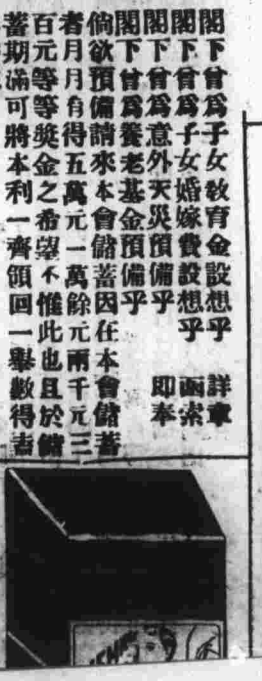 閣下曾爲子女教育金設想乎
閣下曾爲子女婚嫁費設想乎
閣下曾爲意外天災預備乎
閣下曾爲養老基金預備乎
倘欲預備請來本會儲蓄因在本會儲蓄
者月月有得五萬元一萬餘元兩千元三
百元等等獎金之希望不惟此也且於儲
蓄期滿可將本利一齊領回一舉數得
詳章
函索
即奉